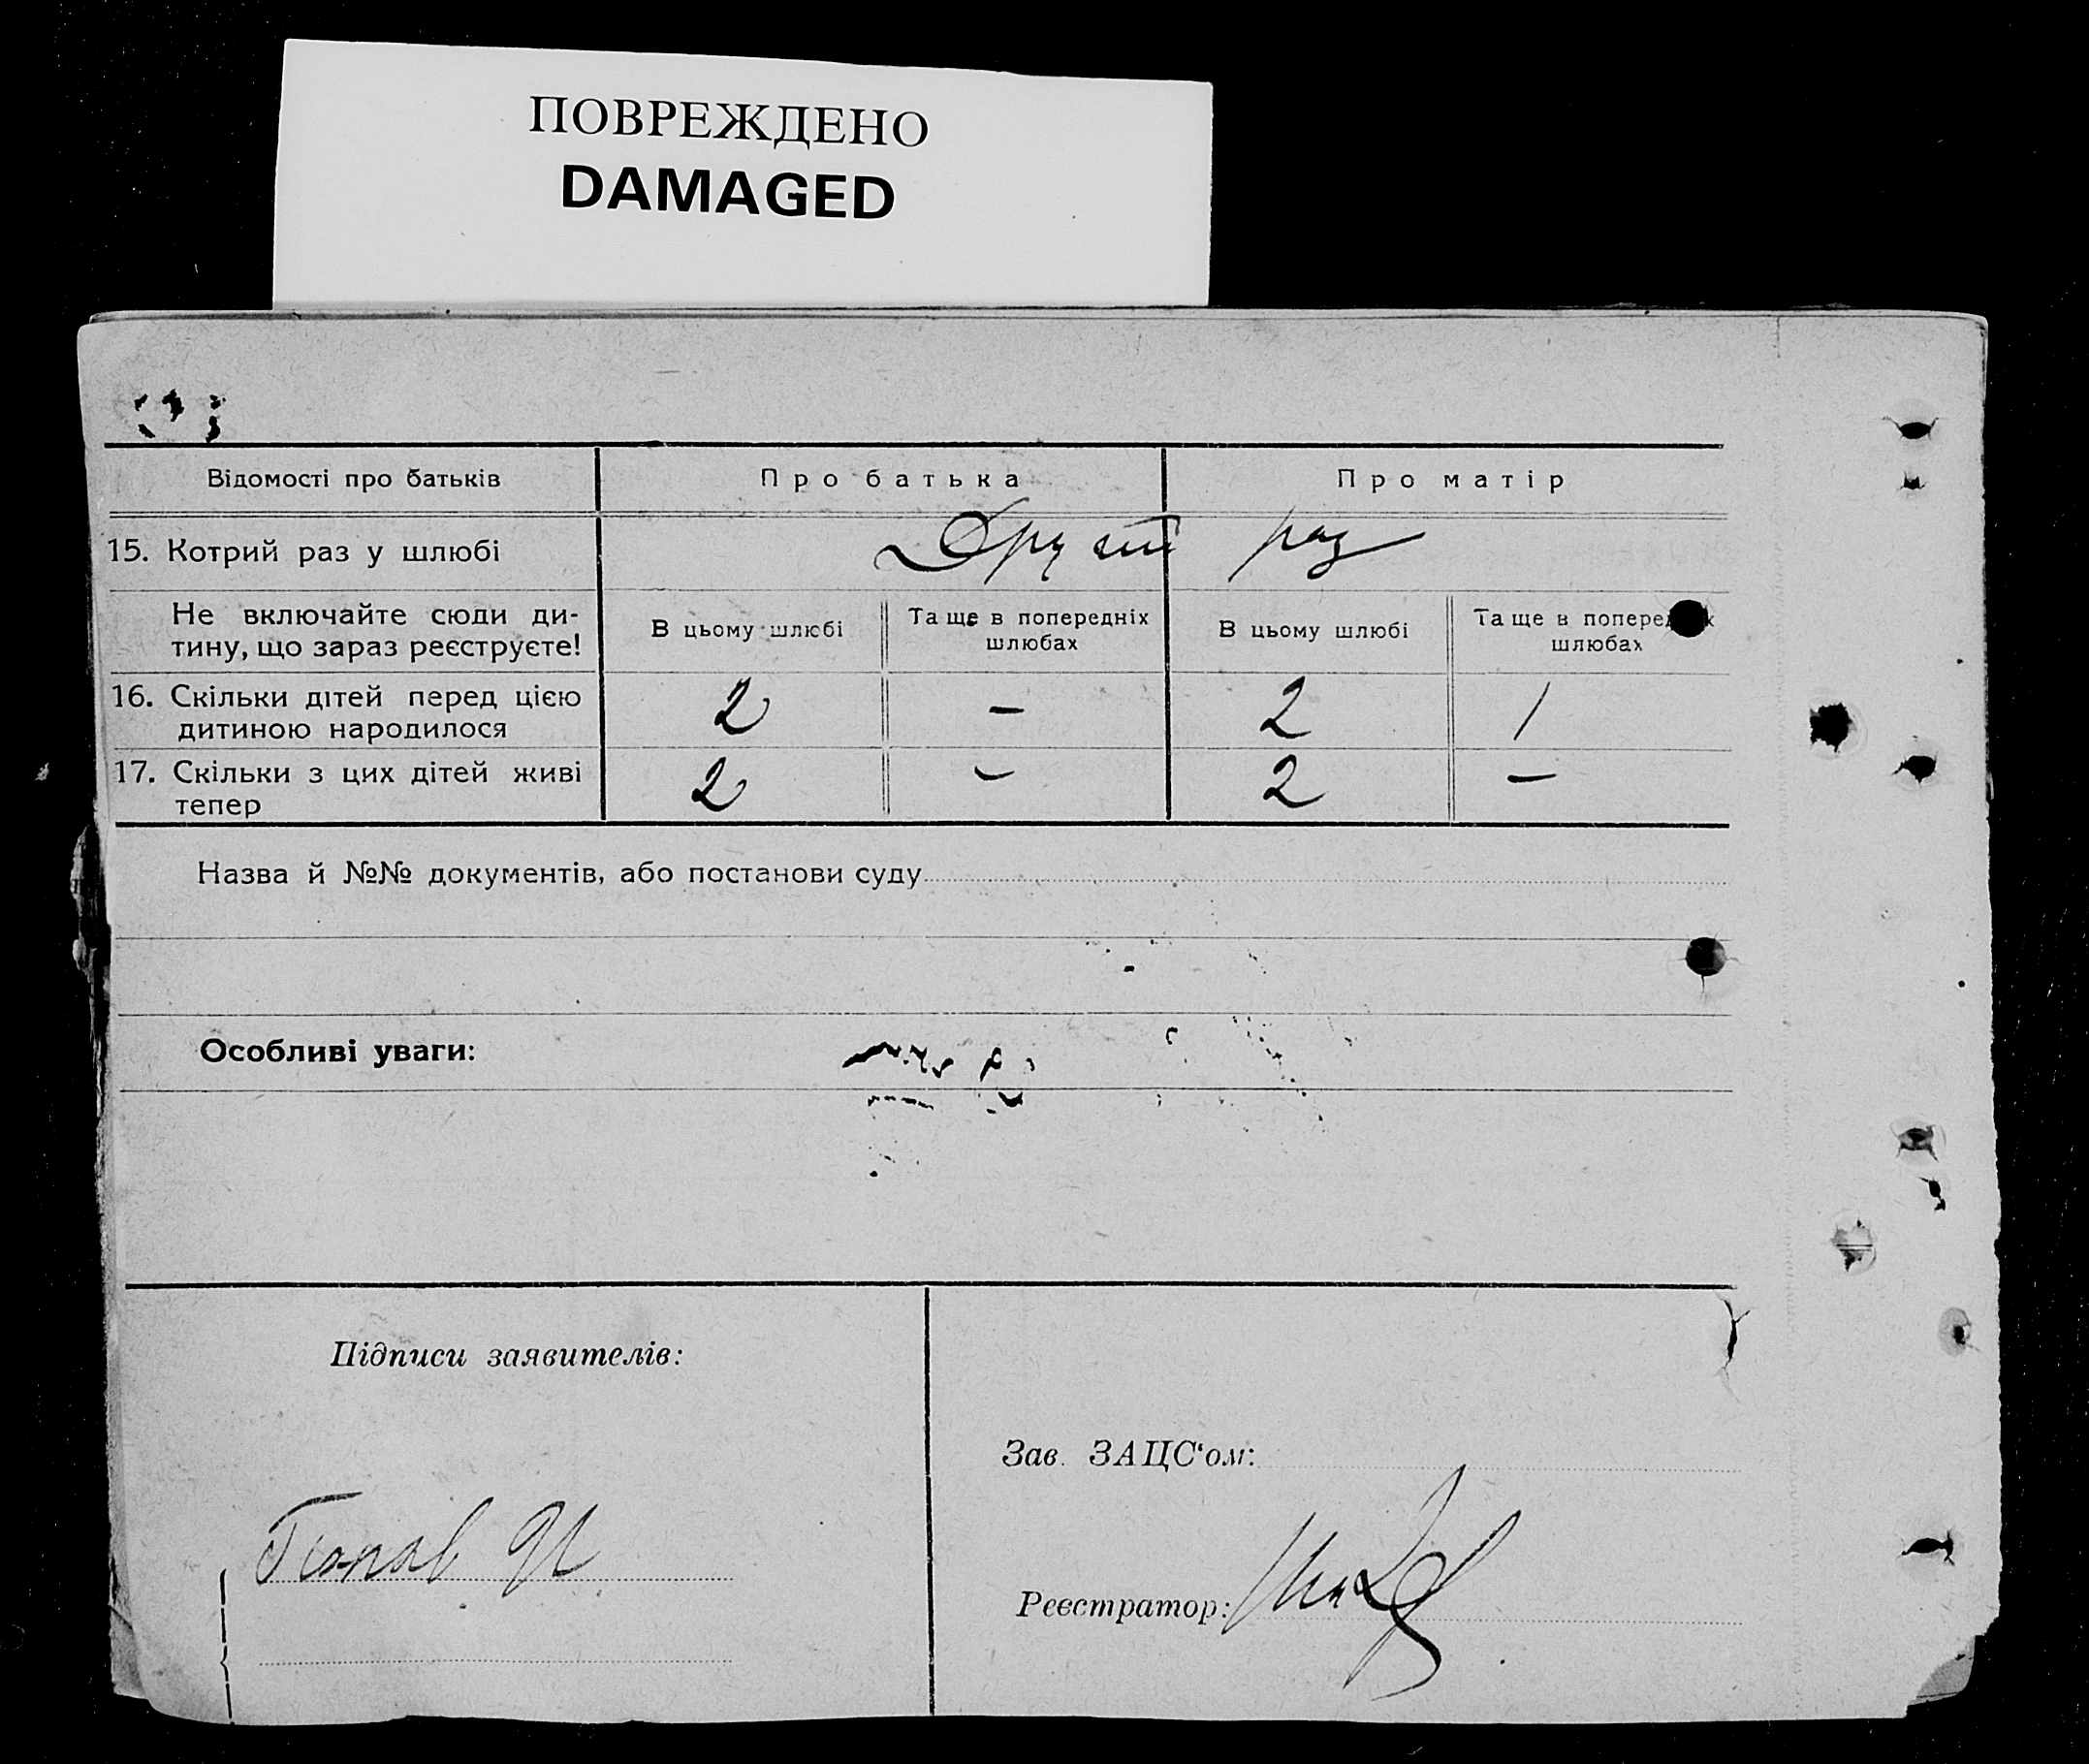 ПОВРЕЖДЕНО
DAMAGED
Відомості про батьків Про батька Про матір
15. Котрий раз у шлюбі Другий раз
Не включайте сюди ди-
тину, що зараз реєструєте!
В цьому шлюбі Та ще в попередніх
шлюбах
В цьому шлюбі Та ще в
шлюбах
16. Скільки дітей перед цією
дитиною народилося
2 – 2 1
17. Скільки з цих дітей живі
тепер
2 – 2 –
Назва й №№ документів, або постанови суду
Особливі уваги:
Підписи заявителів:
Зав. ЗАЦС‘ом:
Реєстратор: